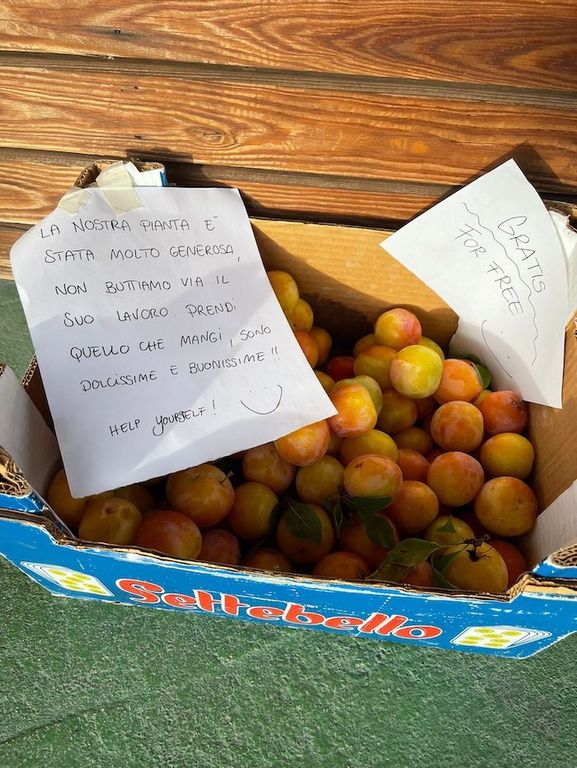 LA NOSTRA PIANTA È
STATA MOLTO GENEROSA,
NON BUTTIAMO VIA IL
SUO LAVORO. PRENDI
QUELLO CHE MANGI, SONO
DOLCISSIME E BUONISSIME!!
HELP YOURSELF!
GRATIS
FOR FREE
Settebello